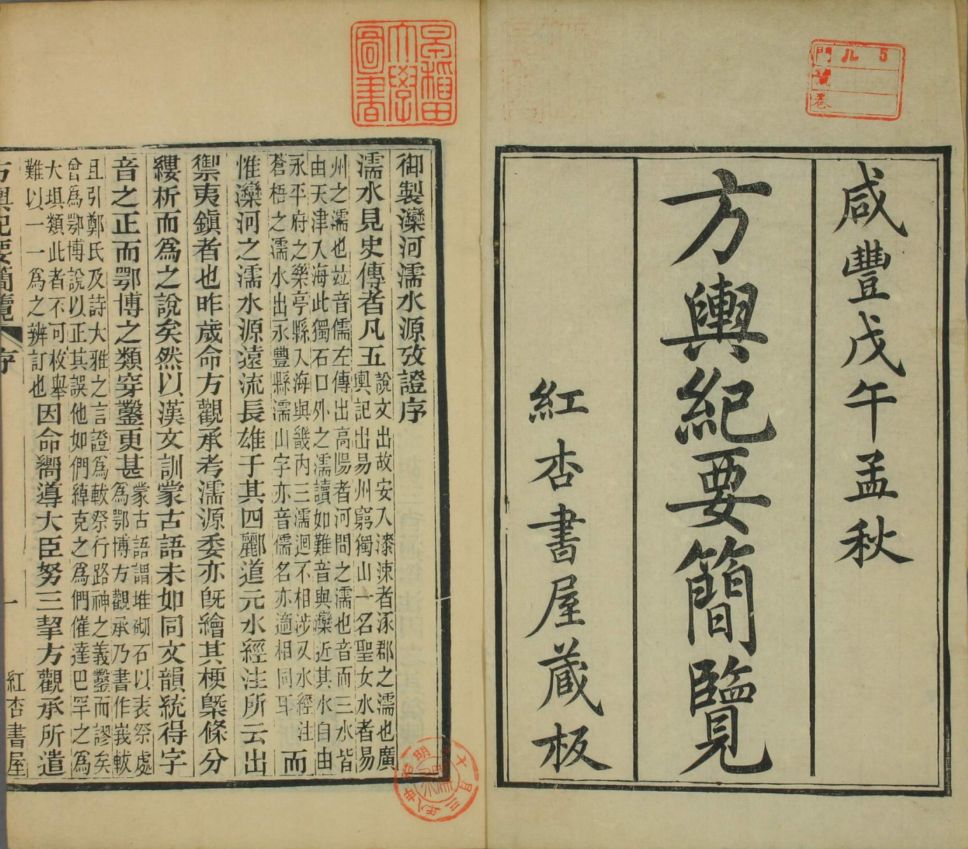 咸豐戊午孟秋
方輿紀要簡覽
紅杏書屋蔵板
早稻田大學圖書
御製灤河濡水源攷證序
濡水見史傳者凡五說文出故安入漆涑者涿郡之濡也廣輿記出易州窮獨山一名聖女水者易
州之濡也竝音儒左傳出高陽者河間之濡也音而三水皆由天津入海此獨石口外之濡讀如難音與灤近其水自由
永平府之樂亭縣入海與畿內三濡迥不相涉又水經注蒼梧之濡水出永豐縣濡山字亦音儒名亦適相同耳而
惟灤河之濡水源遠流長雄于其四酈道元水經注所云出
禦夷鎮者也昨歲命方觀承考濡源委亦旣繪其梗槩條分
縷析而爲之說矣然以漢文訓蒙古語未如同文韻統得字
音之正而鄂博之類穿鑿更甚蒙古語謂堆砌石以表祭處爲鄂博方觀承乃書作峩軷
且引鄭氏及詩大雅之言證爲軷祭行路神之義鑿而謬矣曾爲鄂博說以正其誤他如們緯克之爲們催達巴罕之爲
大壩類此者不可枚舉難以一一爲之辨訂也因命嚮導大臣努三挈方觀承所遣
方輿紀要簡覽 序 一 紅杏書屋